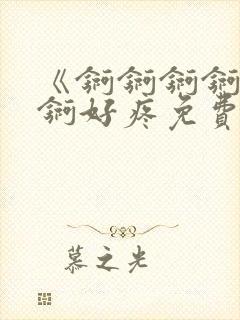 《锕锕锕锕
锕好疼免费
慕之光